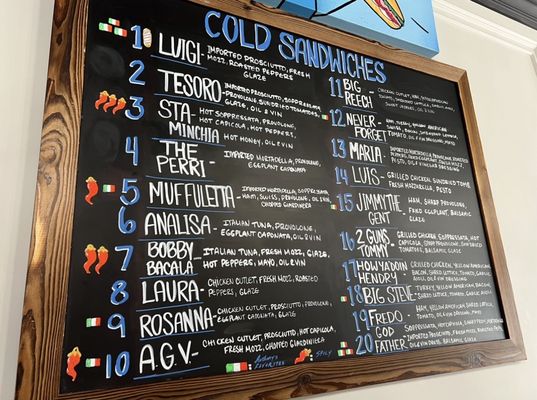 COLD SANDWICHES
1 LUIGI - IMPORTED PROSCIUTTO, FRESH
MOZZ, ROASTED PEPPERS
GLAZE
2 TESORO - IMPORTED PROSCIUTTO, SOPPRESSATA
PROVOLONE, SUNDRIED TOMATOES,
GLAZE, OIL & VIN
3 STA- HOT SOPPRESSATA, PROVOLONE,
MINCHIA HOT CAPICOLA, HOT PEPPERS,
HOT HONEY, OIL & VIN
4 THE IMPORTED MORTADELLA, PROVOLONE,
PERRI - EGGPLANT CAPONATA
5 MUFFULETTA - IMPORTED MORTADELLA, SOPPRESSATA,
HAM, SWISS, PROVOLONE,
CHOPPED GIARDINERA
6 ANALISA - ITALIAN TUNA, PROVOLONE,
EGGPLANT CAPONATA, OIL & VIN
7 BOBBY - ITALIAN TUNA, FRESH MOZZ, GLAZE,
BACALA HOT PEPPERS, MAYO, OIL & VIN
8 LAURA - CHICKEN CUTLET, FRESH MOZZ, ROASTED
PEPPERS, GLAZE
9 ROSANNA - CHICKEN CUTLET, PROSCIUTTO, PROVOLONE,
EGGPLANT CAPONATA, GLAZE
10 A.G.V. - CHICKEN CUTLET, PROSCIUTTO, HOT CAPICOLA,
FRESH MOZZ, CHOPPED GIARDINERA
Anthony's
FAVORITES
SPICY
11 BIG CHICKEN CUTLET,
REECH -
12 NEVER- HAM, TURKEY, AMERICAN
FORGET
13 MARIA - IMPORTED MORTADELLA
14 LUIS - GRILLED CHICKEN, SUNDRIED TOMS
FRESH MANZARELLA, PESTO
15 JIMMY THE HAM, SHARP PROV,
GENT FRIED EGGPLANT, BALSAMIC
GLAZE
16 2 GUNS GRILLED CHICKEN, SOPPRESSATA, HOT
TOMMY CAPICOLA,
TOMATOES, BALSAMIC GLAZE
17 HOWYADOIN GRILLED CHICKEN, AMERICAN
HENDRY BACON, SHRED LETTUCE, TOMATO, GARLIC
18 BIG STEVE - TURKEY, YELLOW AMERICAN, BACON,
SHRED LETTUCE, TOMATO, GARLIC AIOLI
19 FREDO - HAM, YELLOW AMERICAN, SHRED LETTUCE,
TOMATO, OIL & VIN
20 GOD SOPPRESSATA, HOT CAPICOLA, FRESH MOZZ,
FATHER -
BALSAMIC GLAZE